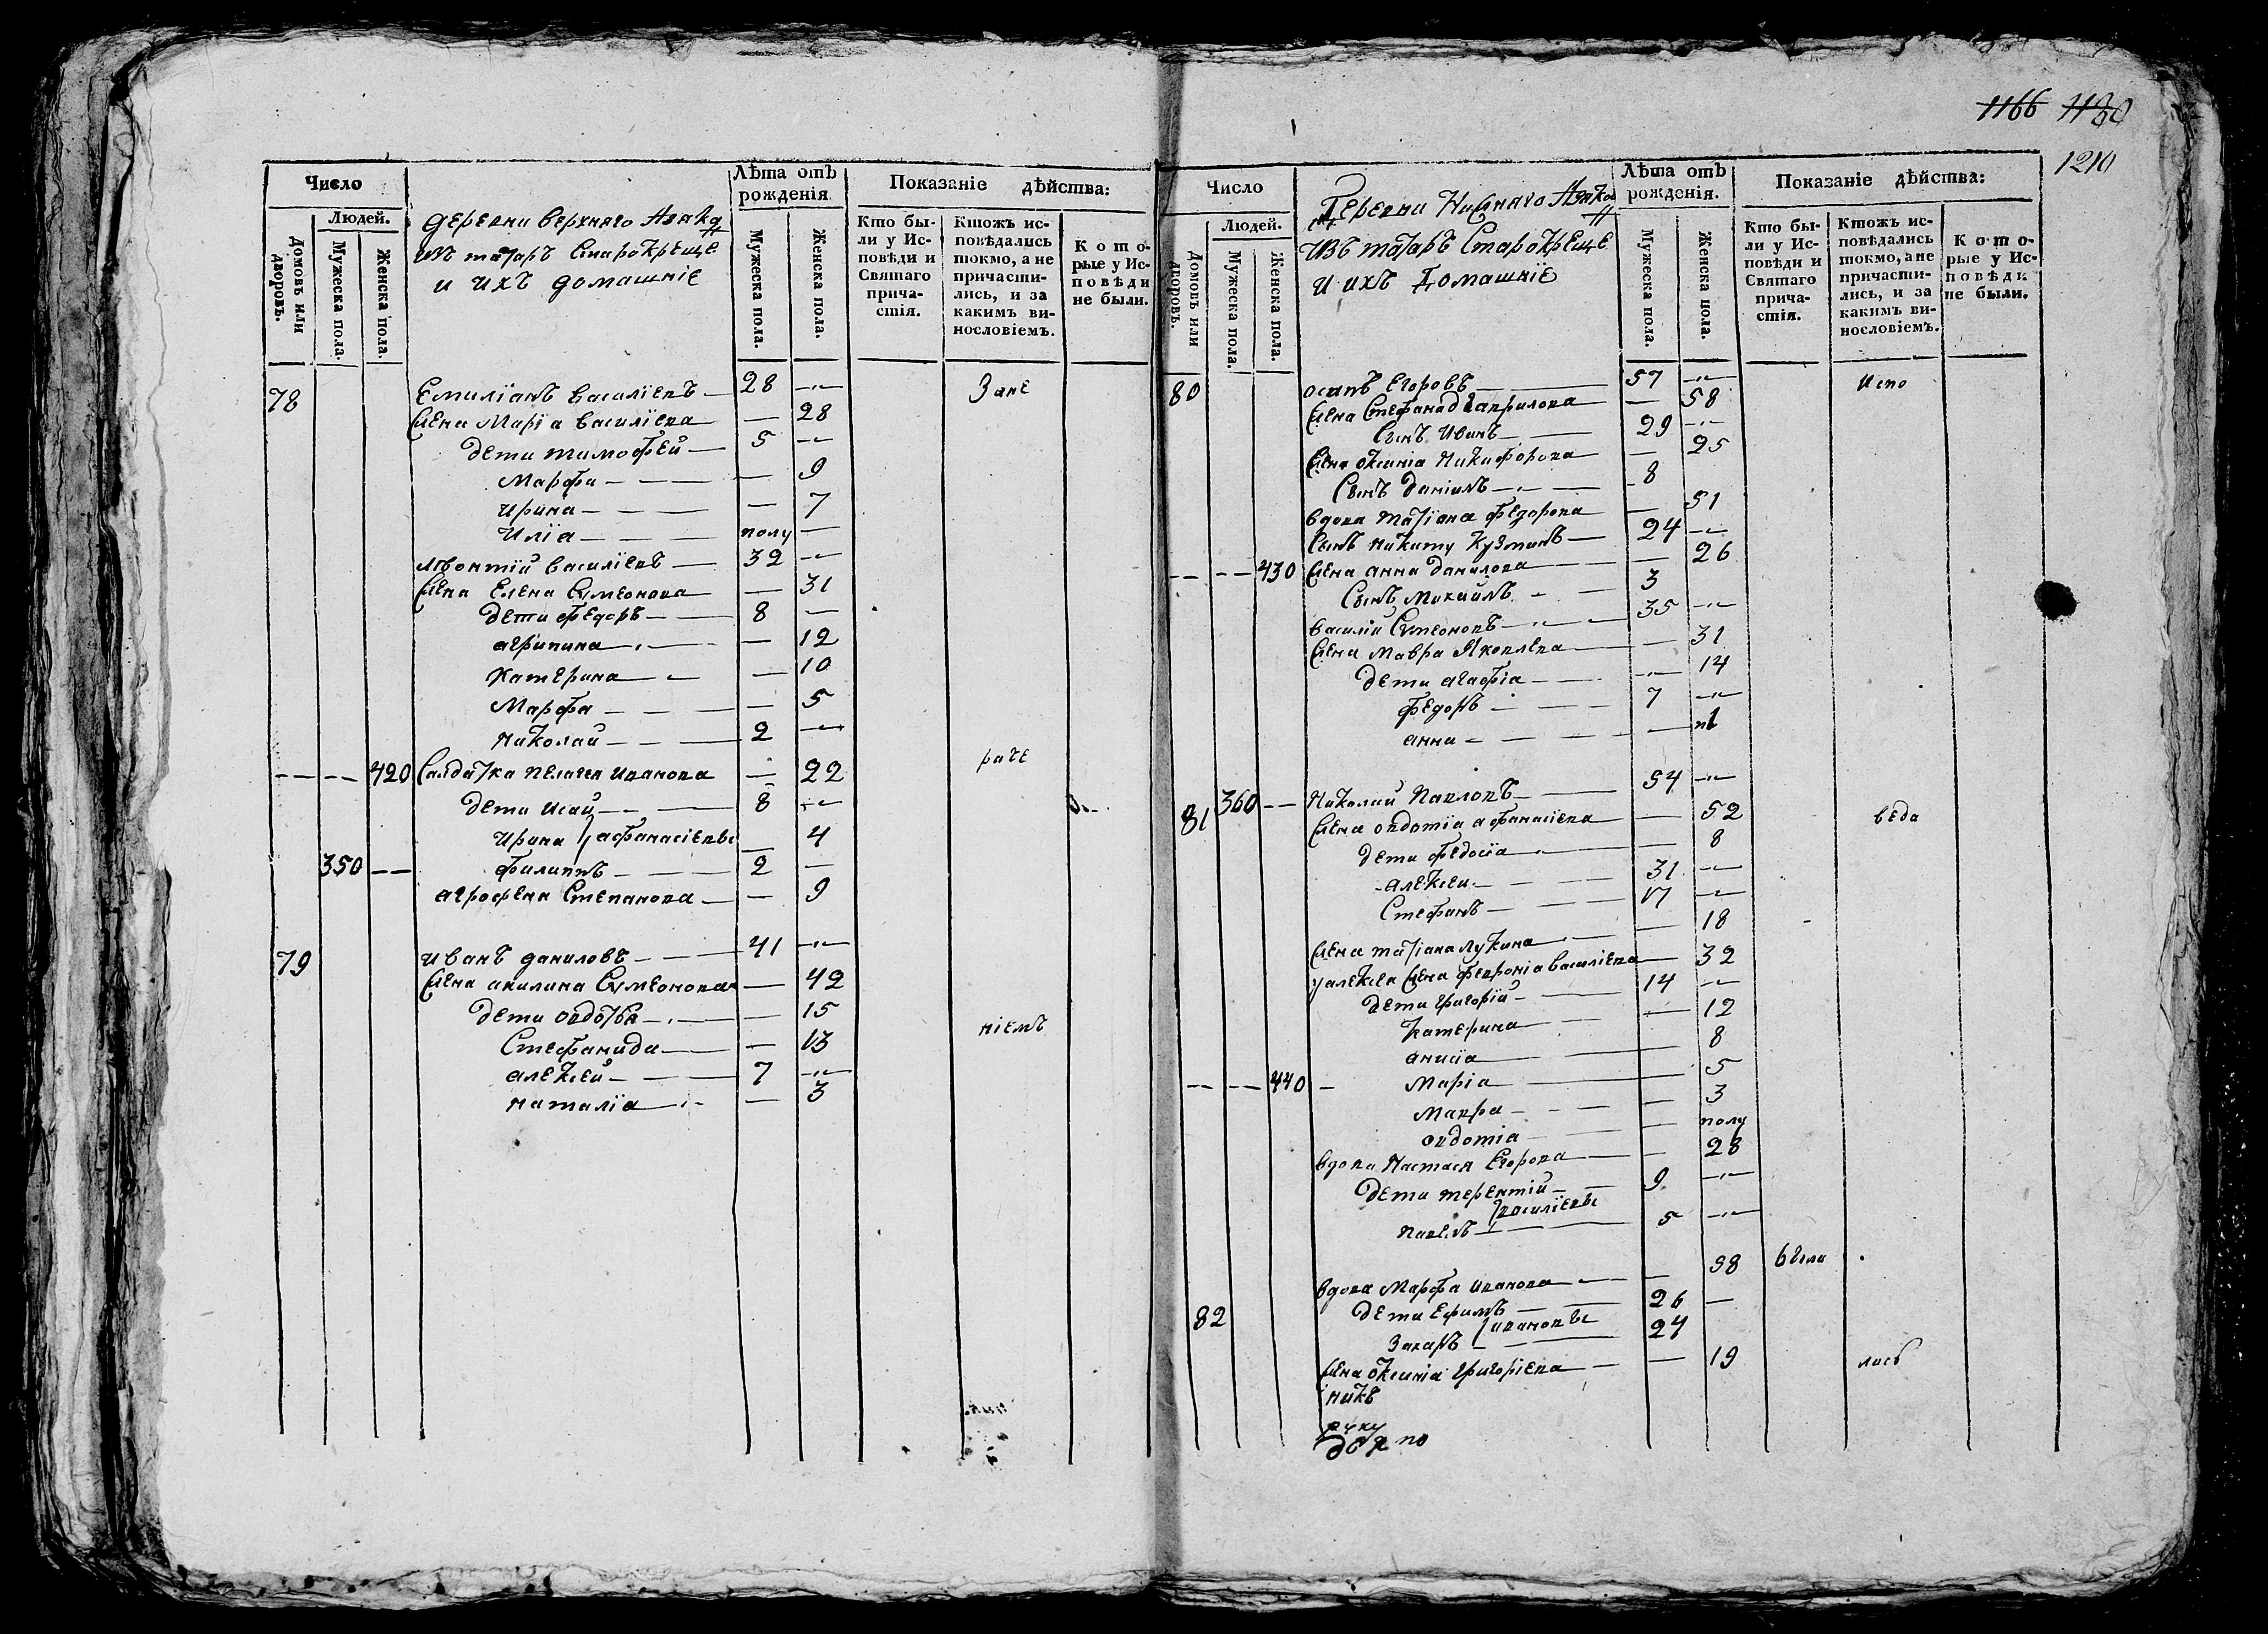 1166 1180
1210
Число
Людей.
Домовъ или дворовъ.
Мужеска пола.
Женска пола.
деревни верхняго
изъ татаръ Старокреще
и ихъ домашніе
Лѣта отъ рожденія.
Мужеска пола.
Женска пола.
Показаніе дѣйства:
Кто были у Исповѣди и Святаго причастія.
Ктожъ исповѣдались токмо, а не причастились, и за какимъ винословіемъ.
Которые у Исповѣди не были.
78 Емиліанъ василіевъ 28 Зане
Жена Маріа василіева 28
дети тимофей 5
Марфа 9
ирина 7
Иліа полу
леонтій василіевъ 32
Жена Елена Симеонова 31
дети федоръ 8
агрипина 12
катерина 10
Марфа 5
николай 2
420 Салдатка пелагея иванова 22 раче
дети исай 8
ирина афанасіевы 4
350 филиппъ 2
агрофена Степанова 9
79 иванъ даниловъ 41
Жена акилина Симеонова 42
дети овдотья 15
Стефанида 13 ніемъ
алексей 7
наталіа 3
Число
Людей.
Домовъ или дворовъ.
Мужеска пола.
Женска пола.
Деревни Нижняго
изъ татаръ Старокреще
и ихъ Домашніе
Лѣта отъ рожденія.
Мужеска пола.
Женска пола.
Показаніе дѣйства:
Кто были у Исповѣди и Святаго причастія.
Ктожъ исповѣдались токмо, а не причастились, и за какимъ винословіемъ.
Которые у Исповѣди не были.
80 осипъ Егоровъ 57 испо
Жена Стефанида гаврилова 58
Сынъ иванъ 29
Жена оксиніа Никифорова 25
Сынъ даніилъ 8
вдова татіана федорова 51
Сынъ никиту кузминъ 24
430 Жена анна данилова 26
Сынъ михаилъ 3
василій Симеоновъ 35
Жена мавра Яковлева 31
дети агафіа 14
федоръ 7
анна 1
81 360 николай павловъ 54
Жена овдотіа афанасіева 52 веда
дети федосіа 8
алексеи 31
Стефанъ 17
Жена татіана лукина 18
у алексея Жена февроніа василіева 32
дети григорій 14
катерина 12
анисіа 8
440 маріа 5
мавра 3
овдотіа полу
вдова настасія Егорова 28
дети терентій 9
василіевы
павелъ 5
вдова марфа иванова 58
82 дети ефимъ 26
ивановы
Захаръ 24
Жена оксиніа григоріева 19 лись